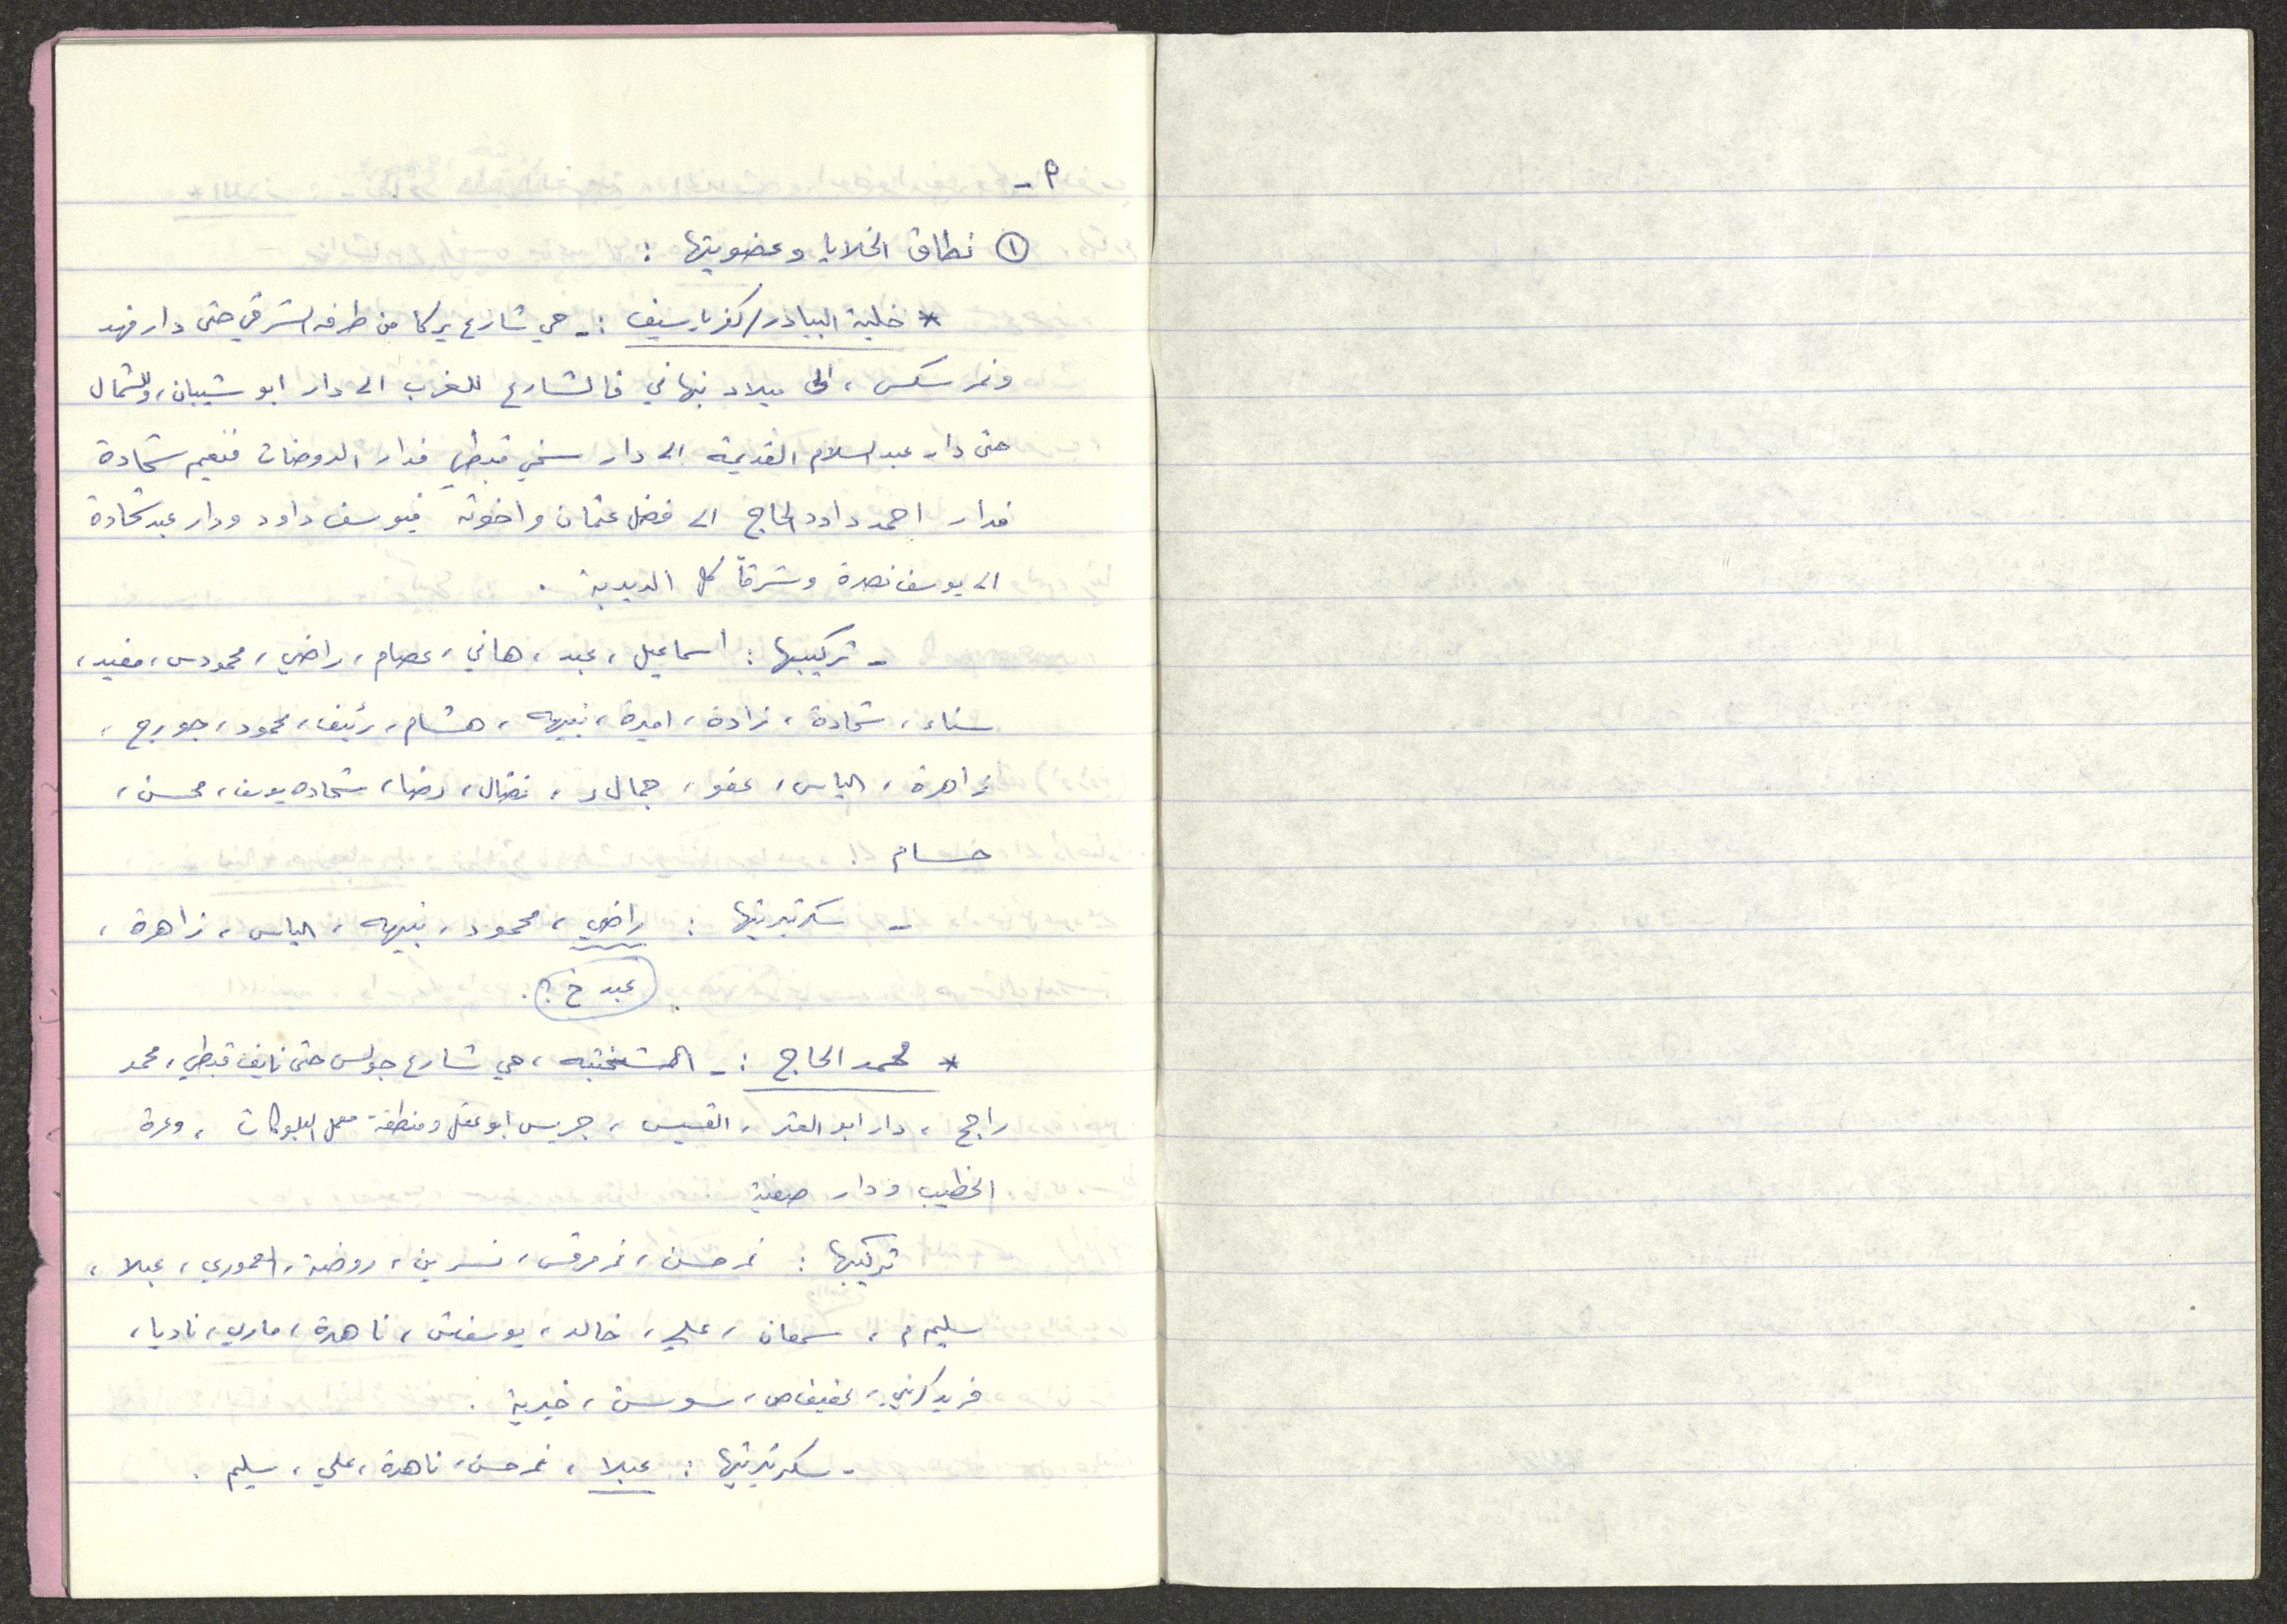 م -
① نطاق الخلايا وعضويتها :
* خلية البيادر/كفرياسيف :- حي شارع يركا من طرفه الشرقي حتى دار فهد
ونمر سكس ، الى ميلاد نبهاني فالشارع للغرب الى دار ابو شيبان، وللشمال
حتى دار عبد السلام القديمة الى دار سخي قبطي فدار الروضات فنعيم شحادة
فدار احمد داود الحاج الى فضل عثمان واخوته فيوسف داود ودار عبد شحادة
الى يوسف نصرة وشرقاً كل
- تركيبها : اسماعيل ، عبد ، هاني ، عصام ، راضي ، محمود س ، مفيد ،
سناء ، شحادة ، اميرة ، نبيه ، هشام ، رئيف ، محمود ، جورج ،
زاهرة ، الياس ، عفو ، جمال ، نضال ، رضا ، شحاده يوسف ، محسن ،
حسام .
- سكرتيريتها : راضي ، محمود ، نبيه ، الياس ، زاهرة ،
عبد خ ؟ .
* محمد الحاج :- ، حي شارع جولس حتى نايف قبطي ، محمد
راجح ، دار ابو العتر ، القسيس ، جريس ابو عقل ومنطقة معمل البلوكات ، وعرة
الخطيب ودار صفية
تركيبها : نمر حسن ، نمر مرقس ، نسرين ، روضة ، العموري ، عبلا ،
سليم م ، سمعان ، علي ، خالد ، يوسف ش ، ناهدة ، ماري ، ناديا ،
فريد كرني ، عفيف ص ، سوسن ، خيرية .
- سكرتيريتها : عبلا ، نمر حسن ، ناهدة ، علي ، سليم .